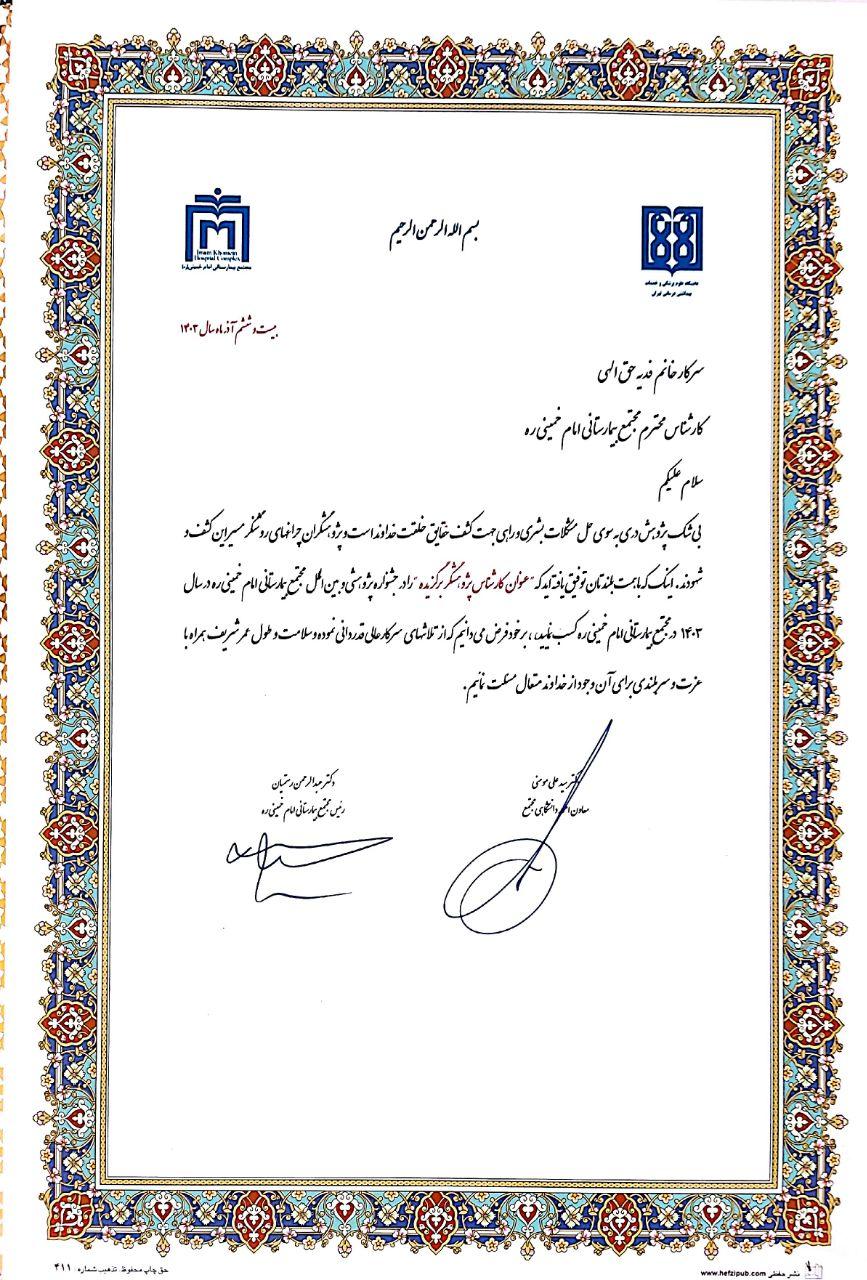 بسم الله الرحمن الرحیم
Imam Khomeini
Hospital Complex
مجتمع بیمارستانی امام خمینی(ره)
دانشگاه علوم پزشکی و خدمات
بهداشتی درمانی تهران
بیست و ششم آذر ماه سال ۱۴۰۳
سرکار خانم فدیه حق الهی
کارشناس محترم مجتمع بیمارستانی امام خمینی ره
سلام علیکم
بی شک پژوهش دری به سوی حل مشکلات بشری و راهی جهت کشف حقایق خلقت خداوند است و پژوهشگران چراغهای روشنگر مسیر این کشف و
شهودند. اینک که با همت بلندتان توفیق یافته اید که "عنوان کارشناس پژوهشگر برگزیده" را در جشنواره پژوهشی و بین الملل مجتمع بیمارستانی امام خمینی ره در سال
۱۴۰۳ در مجتمع بیمارستانی امام خمینی ره کسب نمایید، بر خود فرض می دانیم که از تلاشهای سرکار عالی قدردانی نموده و سلامت و طول عمر شریف همراه با
عزت و سربلندی برای آن وجود از خداوند متعال مسئلت نمائیم.
دکتر سید علی موسی
معاون دانشگاهی مجتمع
دکتر عبدالرحمن رستمیان
رئیس مجتمع بیمارستانی امام خمینی ره
نشر حفظی www.hefzipub.com
حق چاپ محفوظ. تذهیب شماره ۴۱۱